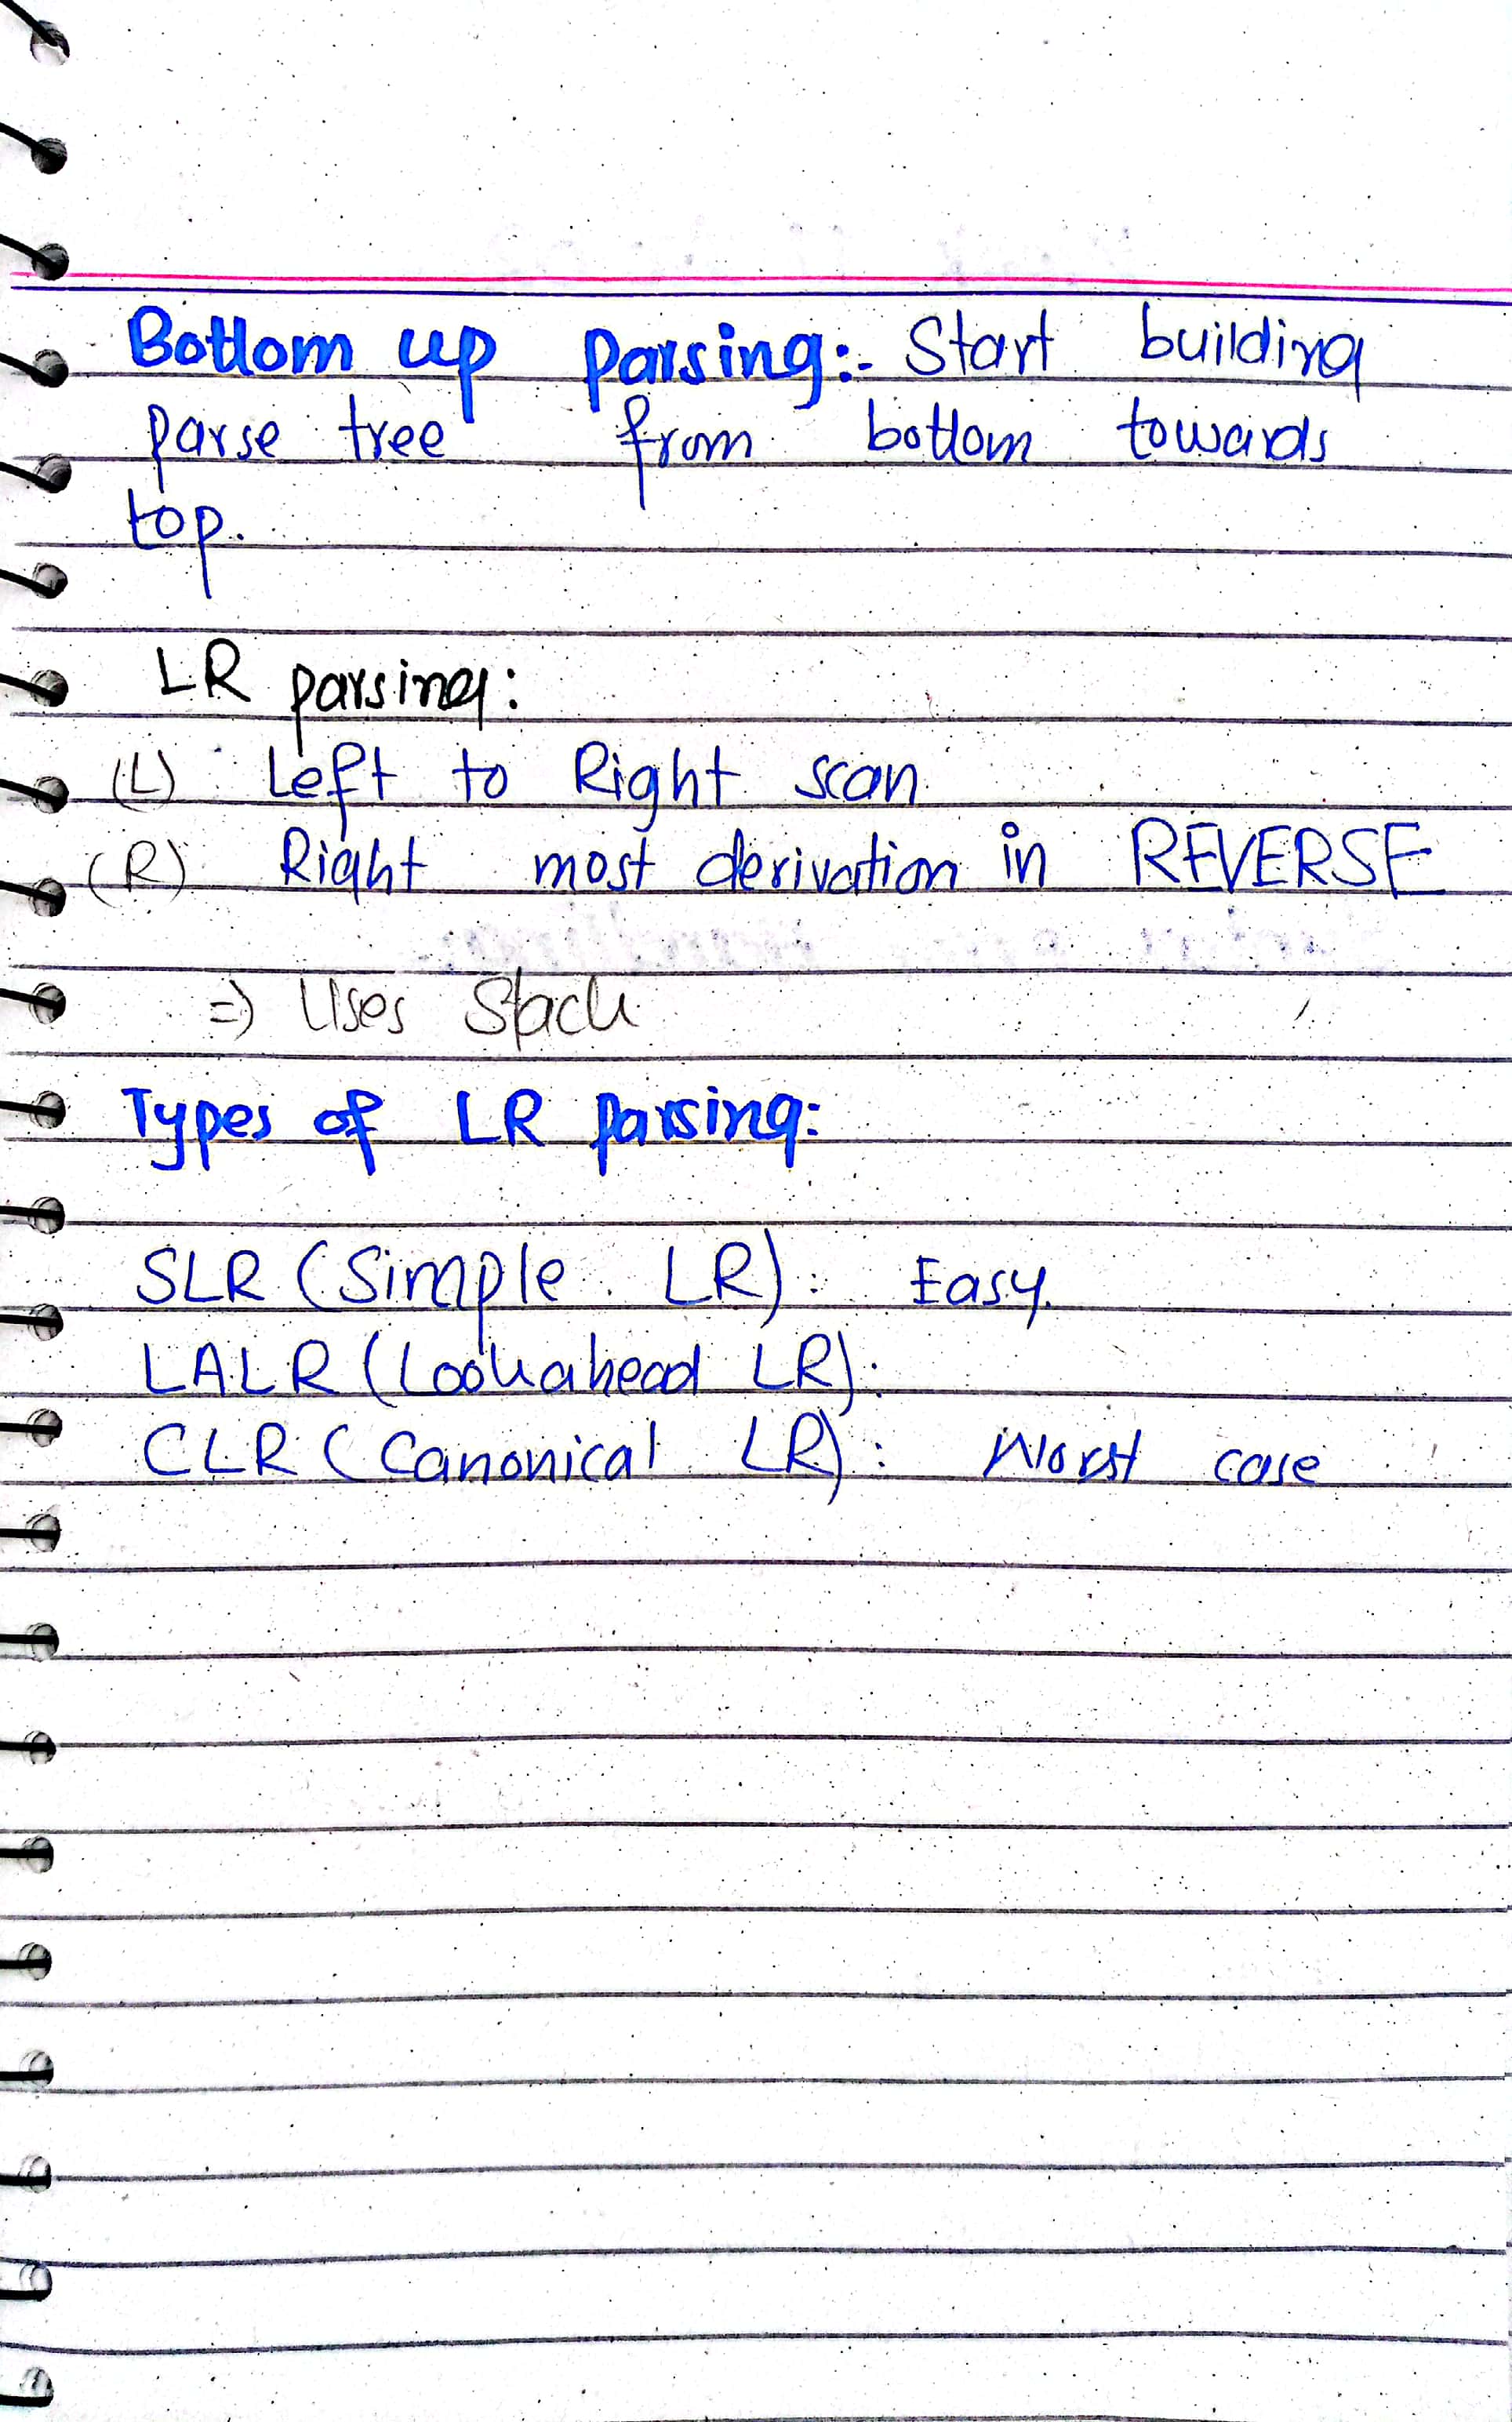 Bottom up parsing:- Start building
parse tree from bottom towards
top.
LR parsing:
(L) Left to Right scan
(R) Right most derivation in REVERSE
=) Uses Stack
Types of LR parsing:
SLR (Simple LR): Easy.
LALR (Lookahead LR):
CLR (Canonical LR): Worst case